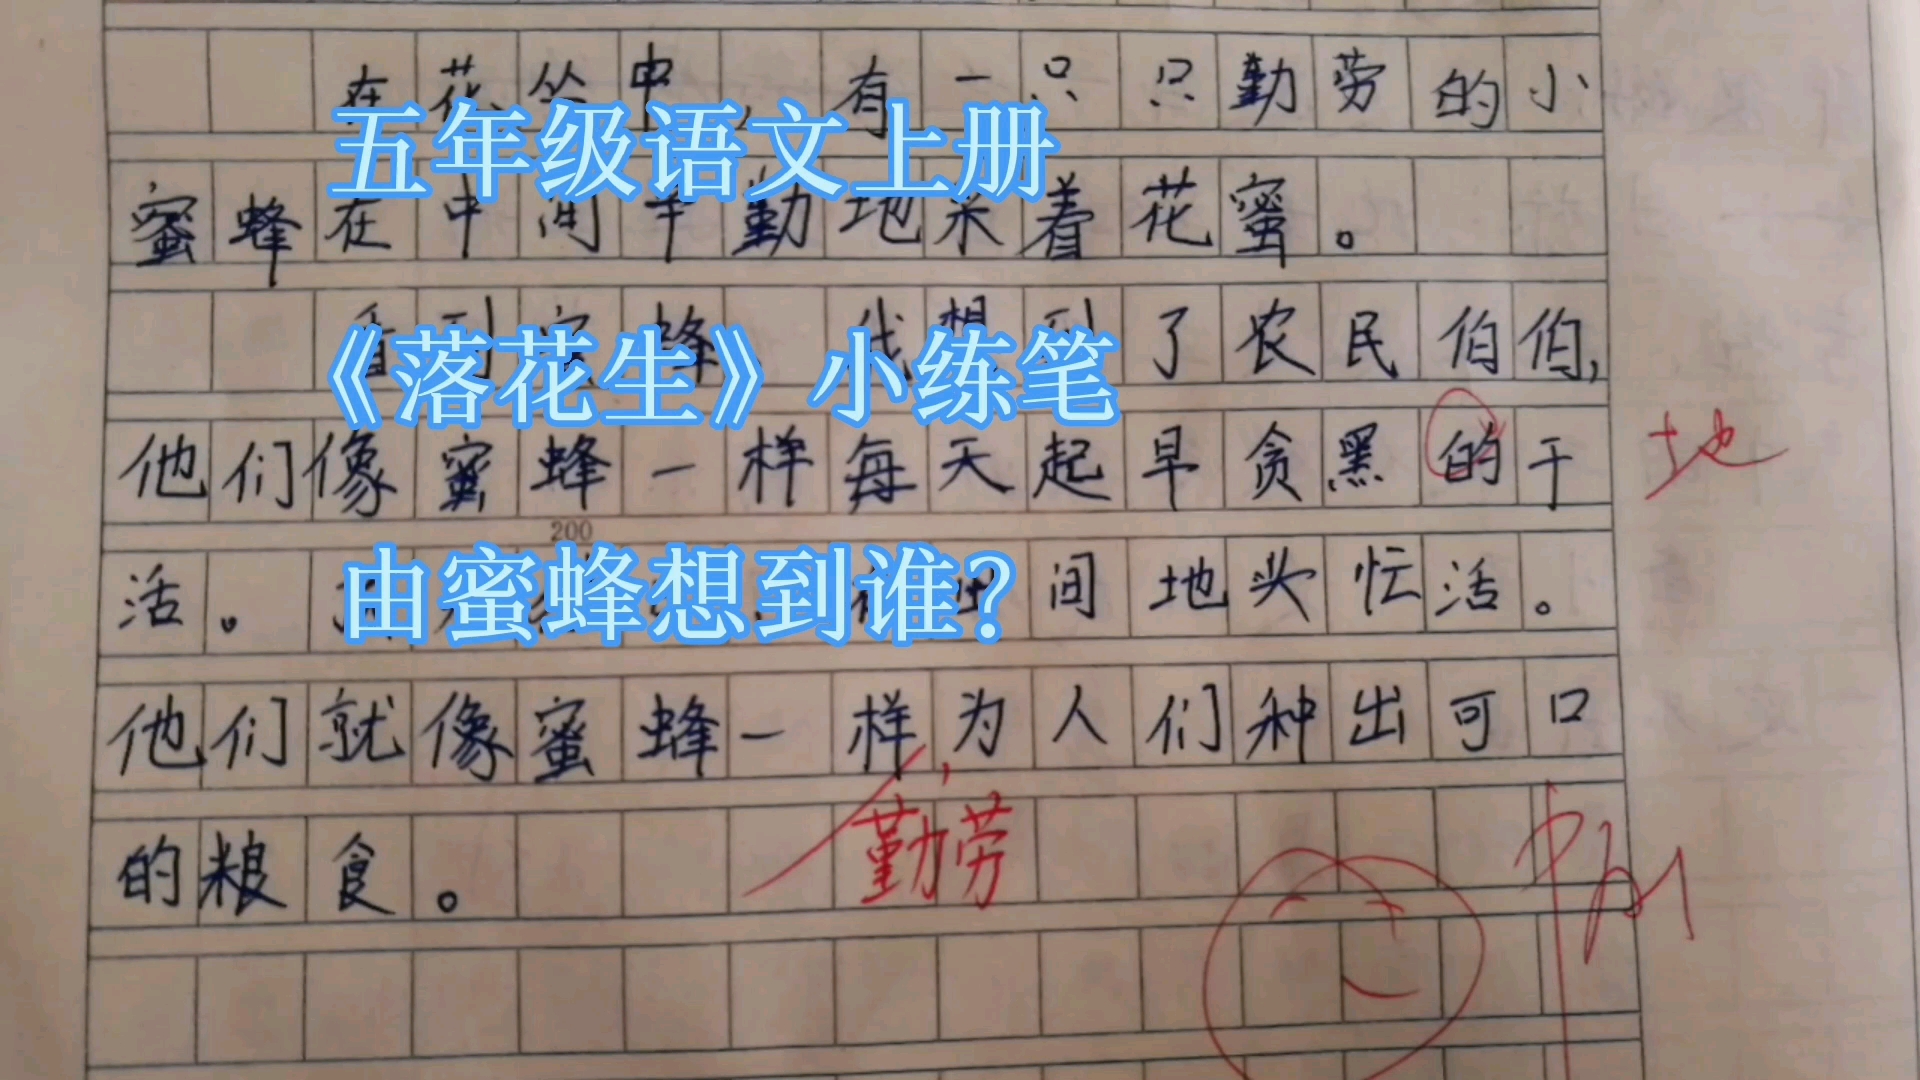 在花丛中,有一只只勤劳的小
五年级语文上册
蜜蜂在中间辛勤地采着花蜜。
看到蜜蜂,我想到了农民伯伯,
《落花生》小练笔
他们像蜜蜂一样每天起早贪黑的干
地
200
活。
间地头忙活。
由蜜蜂想到谁?
他们就像蜜蜂一样,为人们种出可口
勤劳
的粮食。